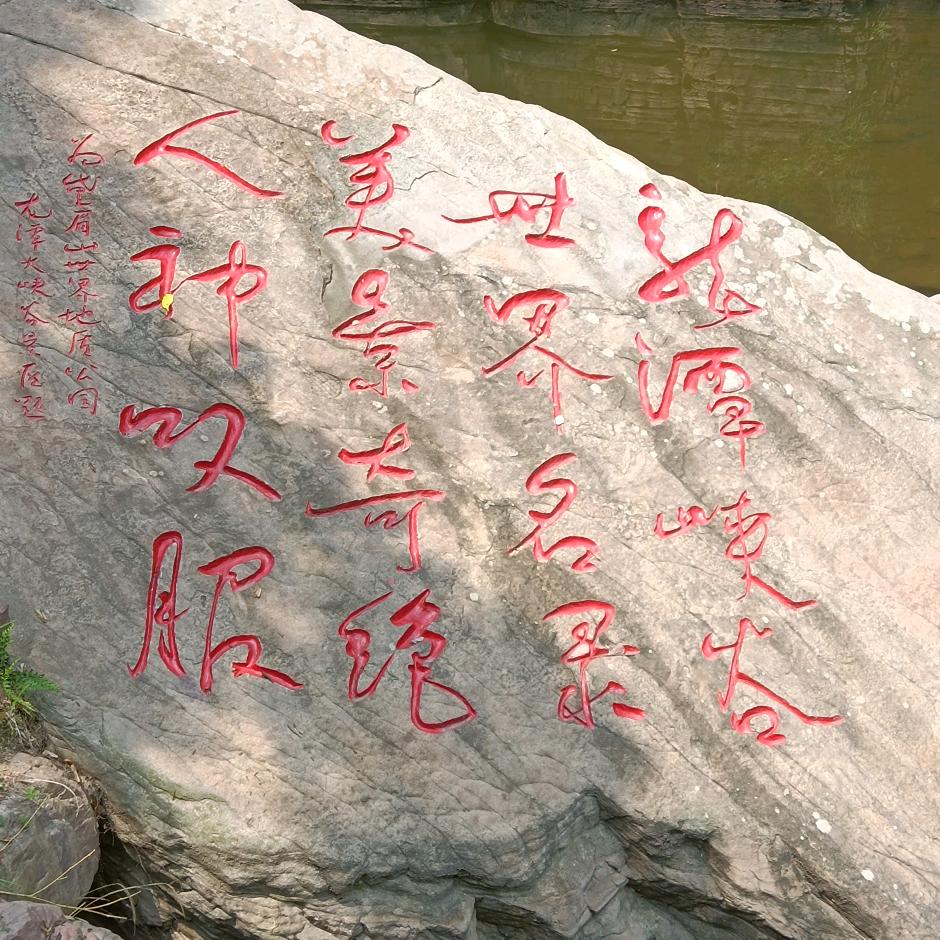 龙潭峡谷
世界名录
美景奇绝
人神叹服
为黛眉山世界地质公园
龙潭大峡谷景区题